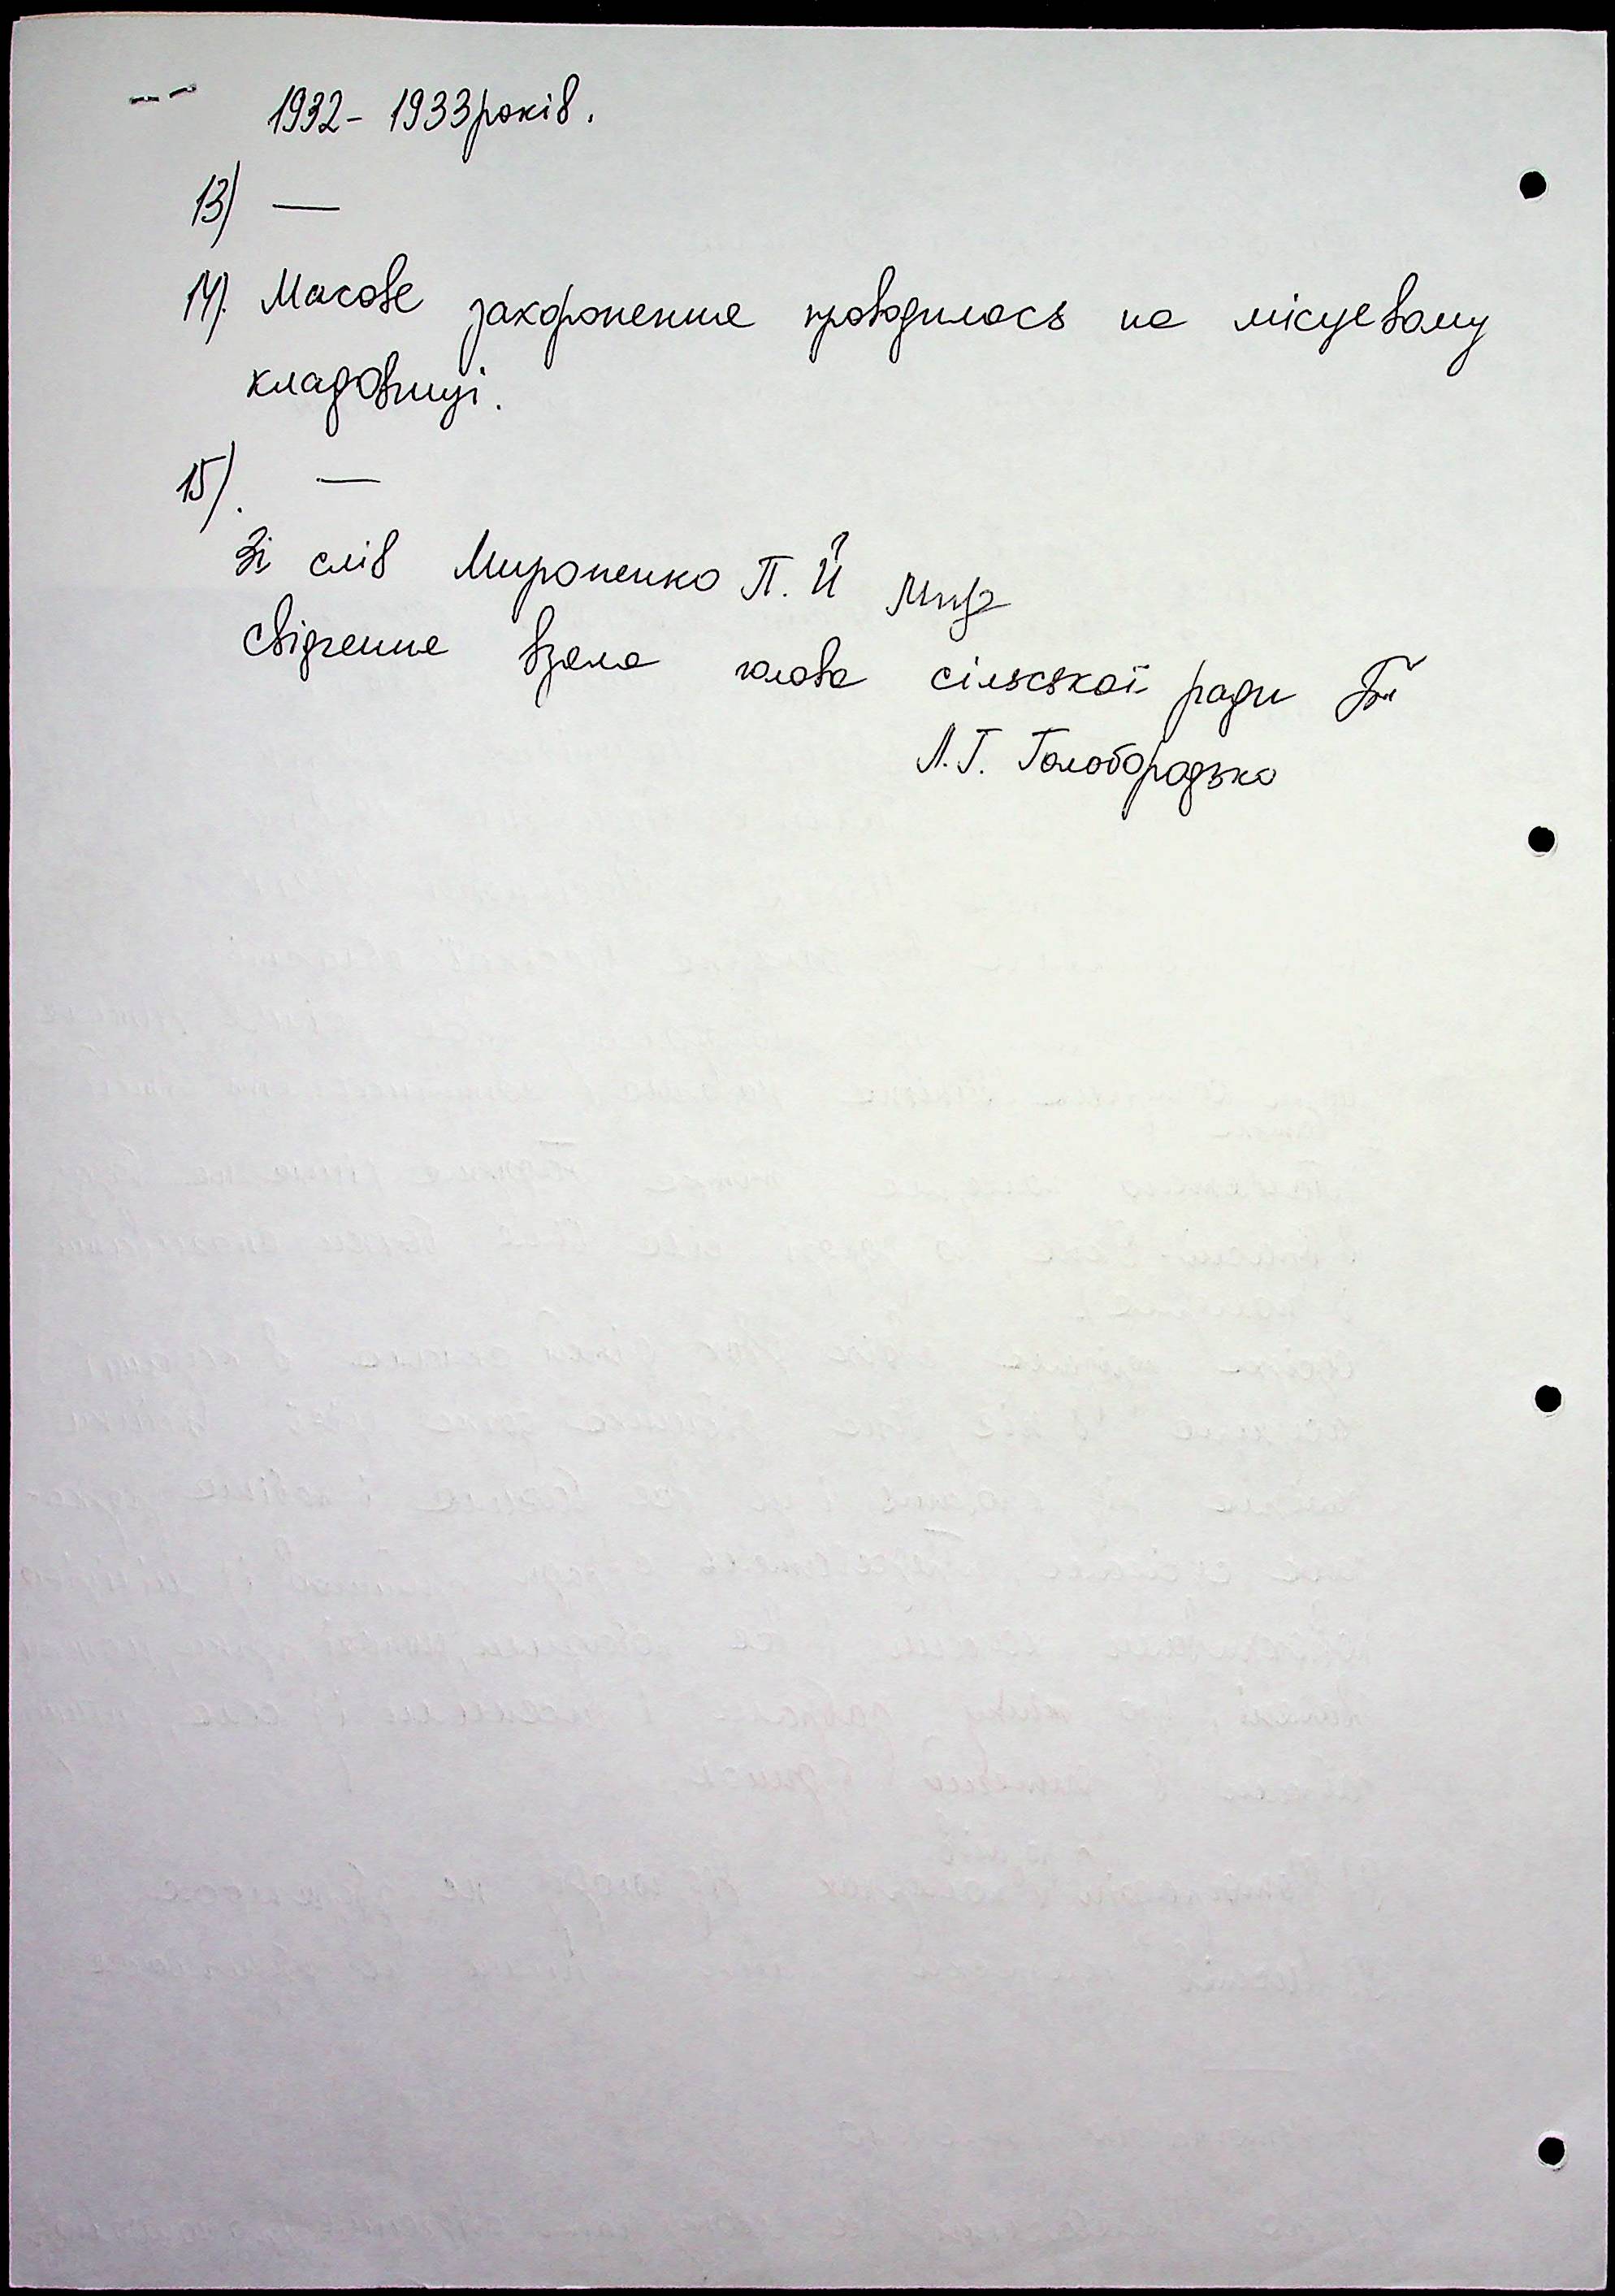 1932 - 1933 років.
13) —
14). Масове захоронення проводилось на місцевому
кладовищі.
15). —
Зі слів Мироненко П. Й
Свідчення взяла голова сільської ради
Л.Г. Голобородько